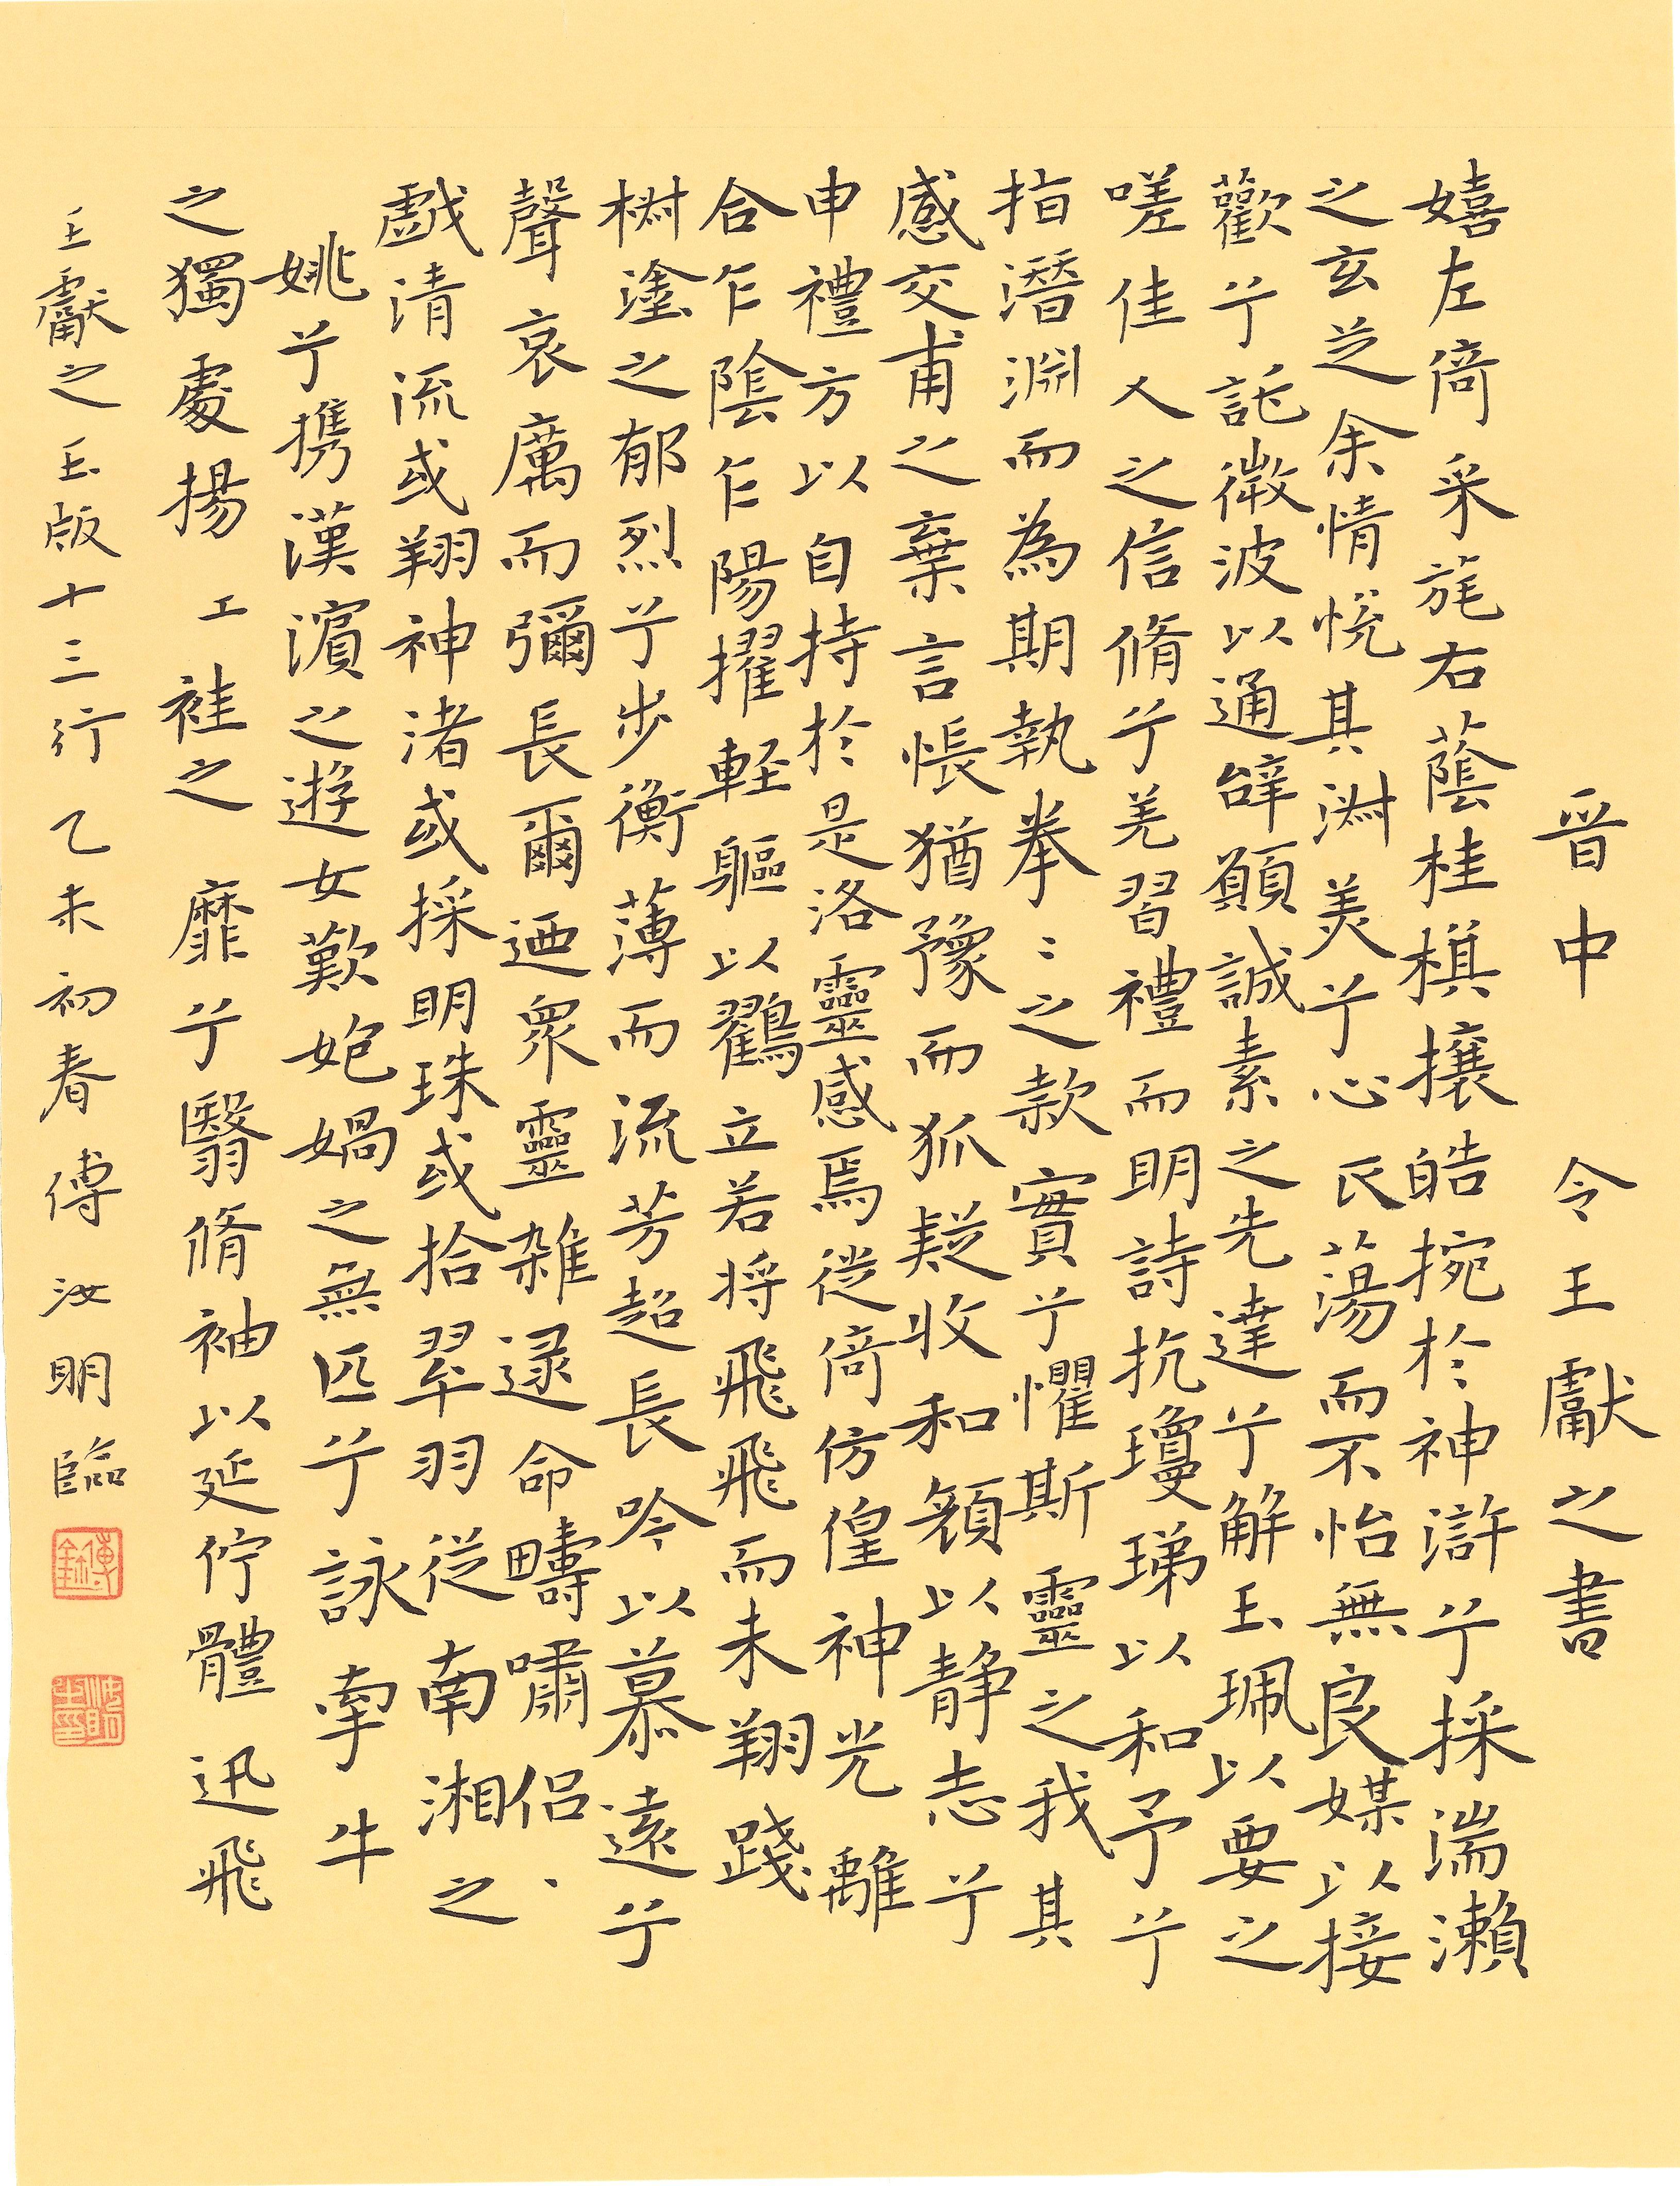 晉中令王獻之書
嬉左倚采旄右蔭桂棋攘皓捥於神滸兮採湍瀨
之玄芝余情悅其淋美兮心振蕩而不怡無良媒以接
歡兮託微波以通辭願誠素之先達兮解玉珮以要之
嗟佳人之信脩兮羌習禮而明詩抗瓊珶以和予兮
指潛淵而為期執拳〻之款實兮懼斯靈之我其
感交甫之棄言悵猶豫而狐疑收和顏以靜志兮
申禮方以自持於是洛靈感焉從倚仿偟神光離
合乍陰乍陽擢輕軀以鶴立若將飛飛而未翔踐
樹塗之郁烈兮步衡薄而流芳超長吟以慕遠兮
聲哀厲而彌長爾迺眾靈雜遝命疇嘯侶、
戲清流或翔神渚或採明珠或拾翠羽從南湘之
姚兮攜漢濱之遊女歎媿媧之無匹兮詠牽牛
之獨處揚工袿之靡兮翳脩袖以延佇體迅飛
王獻之玉版十三行乙未初春傅汝明臨